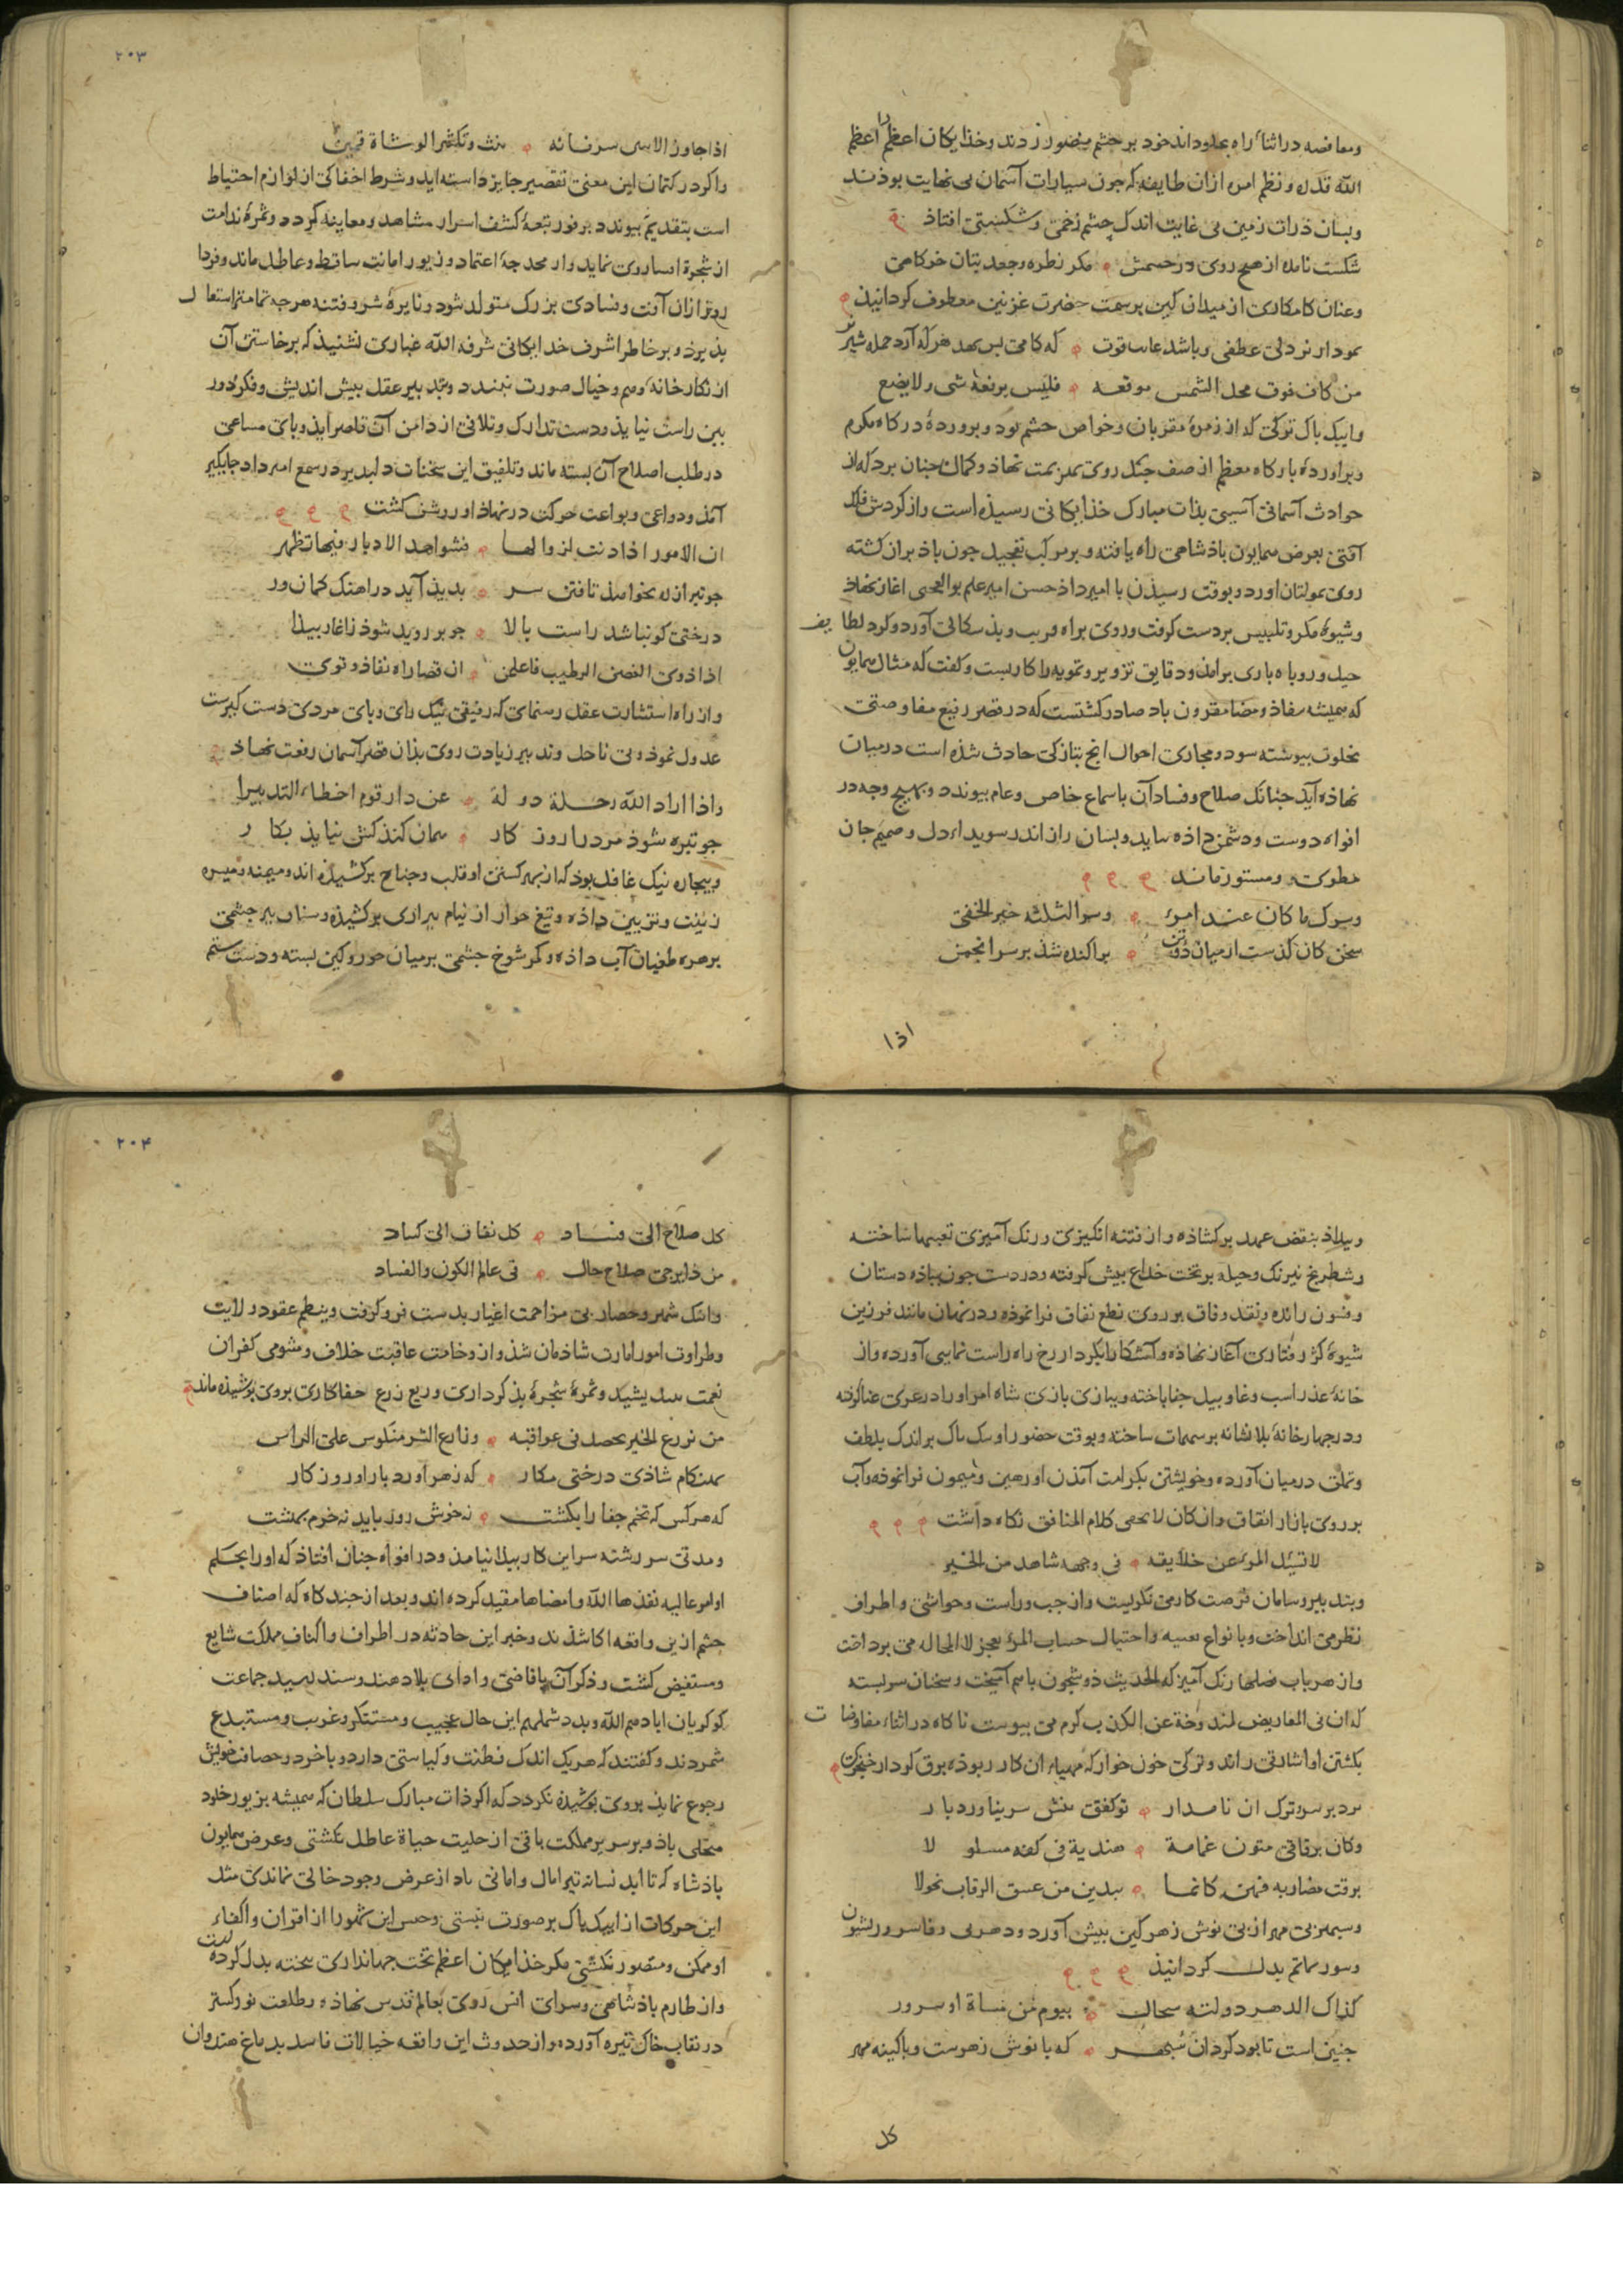 ومعافصه در اثناء راه بهلودانذ خود بر چشم منصور زدند وخذایکان اعظم اعظم
الله قدره و نظم امره ازان طایفه که چون سیارات آسمان بی نهایت بوذنذ
وبسان ذرات زمین بی غایت اندک چشم زخمی و شکستی افتاذ
شکست نامده از هیچ روی در حسمش مکر نطره وجعد بتان خرکاهی
وعنان کامکاری از میدان کین بر سمت حضرت غزنین معطوف کردانیذ
نمودار نردلی عطفی وباشد قوت که کامی بس نهد هرکه آرد حمله شیر نر
من کان فوق محل الشمس موقعه فلیس یرفعه شی ولا یضع
وایبک باک ترکی که از زمرهٔ مقربان وخواص حشم بود و پروردهٔ درکاه مکرم
وبرآوردهٔ بارکاه معظم از صف جنک روی بهزیمت نهاذ وکمان چنان برد که از
حوادث آسمانی آسیبی بذات مبارک خذایکانی رسیذه است واز کردش فلک
آفتی بعرض همایون باذشاهی راه یافته و بر مرکب تعجیل چون باذ بران کشته
روی بمولتان آورد و بوقت رسیذن با امیرداذ حسن امیر علم بوالعجبی آغاز نهاذ
وشیوهٔ مکر و تلبیس بر دست کرفت وروی براه فریب و بذ سکالی آورد و کرد لطایف
حیل و روباه بازی برآمذ و دقایق تزویر و تمویه را کار بست و کفت که مثال همایون
که همیشه بنفاذ ومضا مقرون باد صادر کشتست که در قصر رفیع مفاوضتی
بخلوت بیوسته سود و مجاری احوال انج بتازکی حادث شذه است در میان
نهاذه آید چنانک صلاح وفساد آن باسماع خاص وعام نپیوندد و بهیچ وجه در
افواه دوست و دشمن داذه نیاید و بسان راز اندر سویداء دل و صمیم جان
مطوی و مستور ماند
وسرک ما کان عند امرء وسر الثلثه غیر الخفی
سخن کان کذست از میان دو تن براکنده شذ بر سر انجمن
اذا

٢٠٣
اذا جاوز الاسین سر فانه بنث وتکثیر الوشاة قمین
واکر در کتمان این معنی تقصیر جایز داسته اید و شرط اخفا کی از لوازم احتیاط
است بتقدیم نپیوندد برفور تبعهٔ کشف اسرار مشاهد و معاینه کردد و ثمرهٔ ندامت
از شجرهٔ روی نماید واز محدجهٔ اعتماد و زیور امانت ساقط و عاطل ماند و فردا
روز ازان آفت وفسادی بزرک متولد شود و نایرهٔ شر و فتنه هرچه تمامتر استعال
پذیرد و بر خاطر اشرف خدایکانی شرفه الله غباری نشنیذ که برخاستن آن
از نکارخانهٔ وهم وخیال صورت نبندد و بتدبیر عقل بیش اندیش و فکر دور
بین راست نیایذ و دست تدارک و تلافی از دامن آن قاصر آیذ و پای مساعی
در طلب اصلاح آن بسته ماند و تلفیق این سخنات دلبذیر در سمع امیرداد جایکیر
آمذ و دواعی و بواعث حرکت در نهاذ او روشن کشت
ان الامور اذا دنت لزوالها فشواهد الادبار فیها تظهر
چو تیر از ره بخواهذ تافتن سر بدیذ آید در آهنک کمان ور
درختی کو نباشد راست بالا چو بر روید شوذ ز آغاز بیذا
اذا ذوی الغصن الرطیب فاعلمن ان قصاراه نفاذ و توی
واز راه استشارت عقل رهنمای که رفیقی نیک رای و بای مردی دست کیرست
عدول نموذ وبی تاحل وتدبیر زیادت روی بذان قصر آسمان رفعت نهاذ
واذا اراد الله رحلة دولة عن دار قوم اخطاء التدبیرا
چو تیره شوذ مرد را روزکار همان کند کش نیایذ بکار
وبیچاره نیک غافل بوذ که از بهر کستن او قلب وجناح برکشیذه اند ومیمنه ومیسره
زینت و تزیین داذه و تیغ خوار از نیام بیزاری برکشیذه وسنان بیرحشمی
بزهره طغیان آب داذه و کمر شوخ چشمی بر میان جور وکین بسته ودست ستم

وبیداذ بنقض عهد برکشاذه و از فتنه انکیزی و رنک آمیزی تعبیها ساخته
وشطرنج نیرنک وحیله بر تخت خداع بیش کرفته و در دست چون بیاذه دستان
وفسون رانده و نقد وفاق بر روی نطع نفاق فرا نموذه و در نهان مانند فرزین
شیوهٔ کژ رفتاری آغاز نهاذه و آشکارا بکردار رخ راه راست نمایی آورده واز
خانهٔ عذر اسب وغا و پیل جفا باخته و ببازی بازی شاه امر او را در عری عنا کرفته
ودر چهارخانهٔ بلا نشانه بر سهمات ساخته و بوقت حضور او باک براندک بلطف
وتملق در میان آورده و خویشتن بکرامت آمذن او رهین و میمون فرا نموذه و آب
بر روی بازار انفاق واز کان لا یحصی کلام المنافق نکاه داشت
لا تسئل المرء عن خلایقه فی وجهه شاهد من الخبر
وبتدبیر و سامان فرصت کار می نکریست واز چپ و راست و حواشی و اطراف
نظر می انداخت و با نواع تعبیه و احتیال حساب المرء یعجز لا المحاله می پرداخت
واز هر باب فصلها رنک آمیز که الحدیث ذو شجون باهم آمیخت وسخنان سربسته
که ان فی المعاریض لمندوحة عن الکذب کرم می پیوست ناکاه در اثناء مفاوضات
بکشتن او اشارتی راند و ترکی خون خوار که مهیاء ان کار بوذه برق کردار خنجر کین
بزد بر سر ترک ان نامدار تو کفتی تنش سر نیاورد بار
وکان برقا فی متون غمامة هندیة فی کفه مسلولا
برقت مضاربه فهن کانما یبدین من عسق الرقاب نحولا
وسپهر بی مهر از پی نوش زهر کین بیش آورد و دهر بی وفا سرور بشیون
وسور بماتم بدل کردانیذ
کذاک الدهر دولته سجال بیوم من مساة او سرور
چنین است تا بود کردان سپهر که با نوش زهرست و با کینه مهر
کل

٢٠۴
کل صلاح الی فساد کل نفاق الی کساد
من ذا یرجی صلاح حال فی عالم الکون والفساد
وانک شهر و حصار بی مزاحمت اغیار بدست فرو کرفت و بنظم عقود ولایت
وطراوت امور امارت شاذمان شذ واز وخامت عاقبت خلاف ومشومی کفران
نعمت نیندیشید و ثمرهٔ شجرهٔ بذ کرداری وریع زرع جفاکاری بروی پوشیذه ماند
من یزرع الخیر یحصد فی عواقبه وزارع الشر منکوس علی الراس
بهنکام شاذی درختی مکار که زهر آورد بار او روزکار
که هر کس که تخم جفا را بکشت نه خوش روز باید نه خرم بهشت
ومدتی سر رشته سر این کار بپدا نیامذ و در افواه چنان افتاذ که او را بحکم
اوامر عالیه نفذها الله وامضاها مقید کرده اند و بعد از چند کاه که اصناف
چشم ازین واقعه آکاه شذند وخبر این حادثه در اطراف واکناف مملکت شایع
ومستفیض کشت و ذکر آن باقاضی وادانی بلاد هند وسند برسید جماعت
کوکریان ابادهم الله وبدد شملهم این حال عجیب و مستنکر و غریب و مستبدع
شمردند و کفتند که هر یک اندک فطنت وکیاستی دارد و با خرد و حصافت خویش
رجوع نمایذ بروی پوشیذه نکردد که اکر ذات مبارک سلطان که همیشه بزیور خلود
متحلی باذ و بر سریر مملکت باقی از حلیت حیاة عاطل نکشتی وعرض همایون
باذشاه که تا ابد نسانه تیر امال وامانی باد از عرض وجود خالی نماندی مثل
این حرکات از ایبک باک بر صورت نبستی و جنس این تهور از اقران واکفاء
او ممکن و متصور نکشتی مکر خذایکان اعظم تخت جهانداری بتخته بدل کرده است
واز طارم باذشاهی وسرای انس روی بعالم قدس نهاذه و طلعت نور کستر
در نقاب خاک تیره آورده و از حدوث این واقعه خیالات فاسد بدماغ هندوان